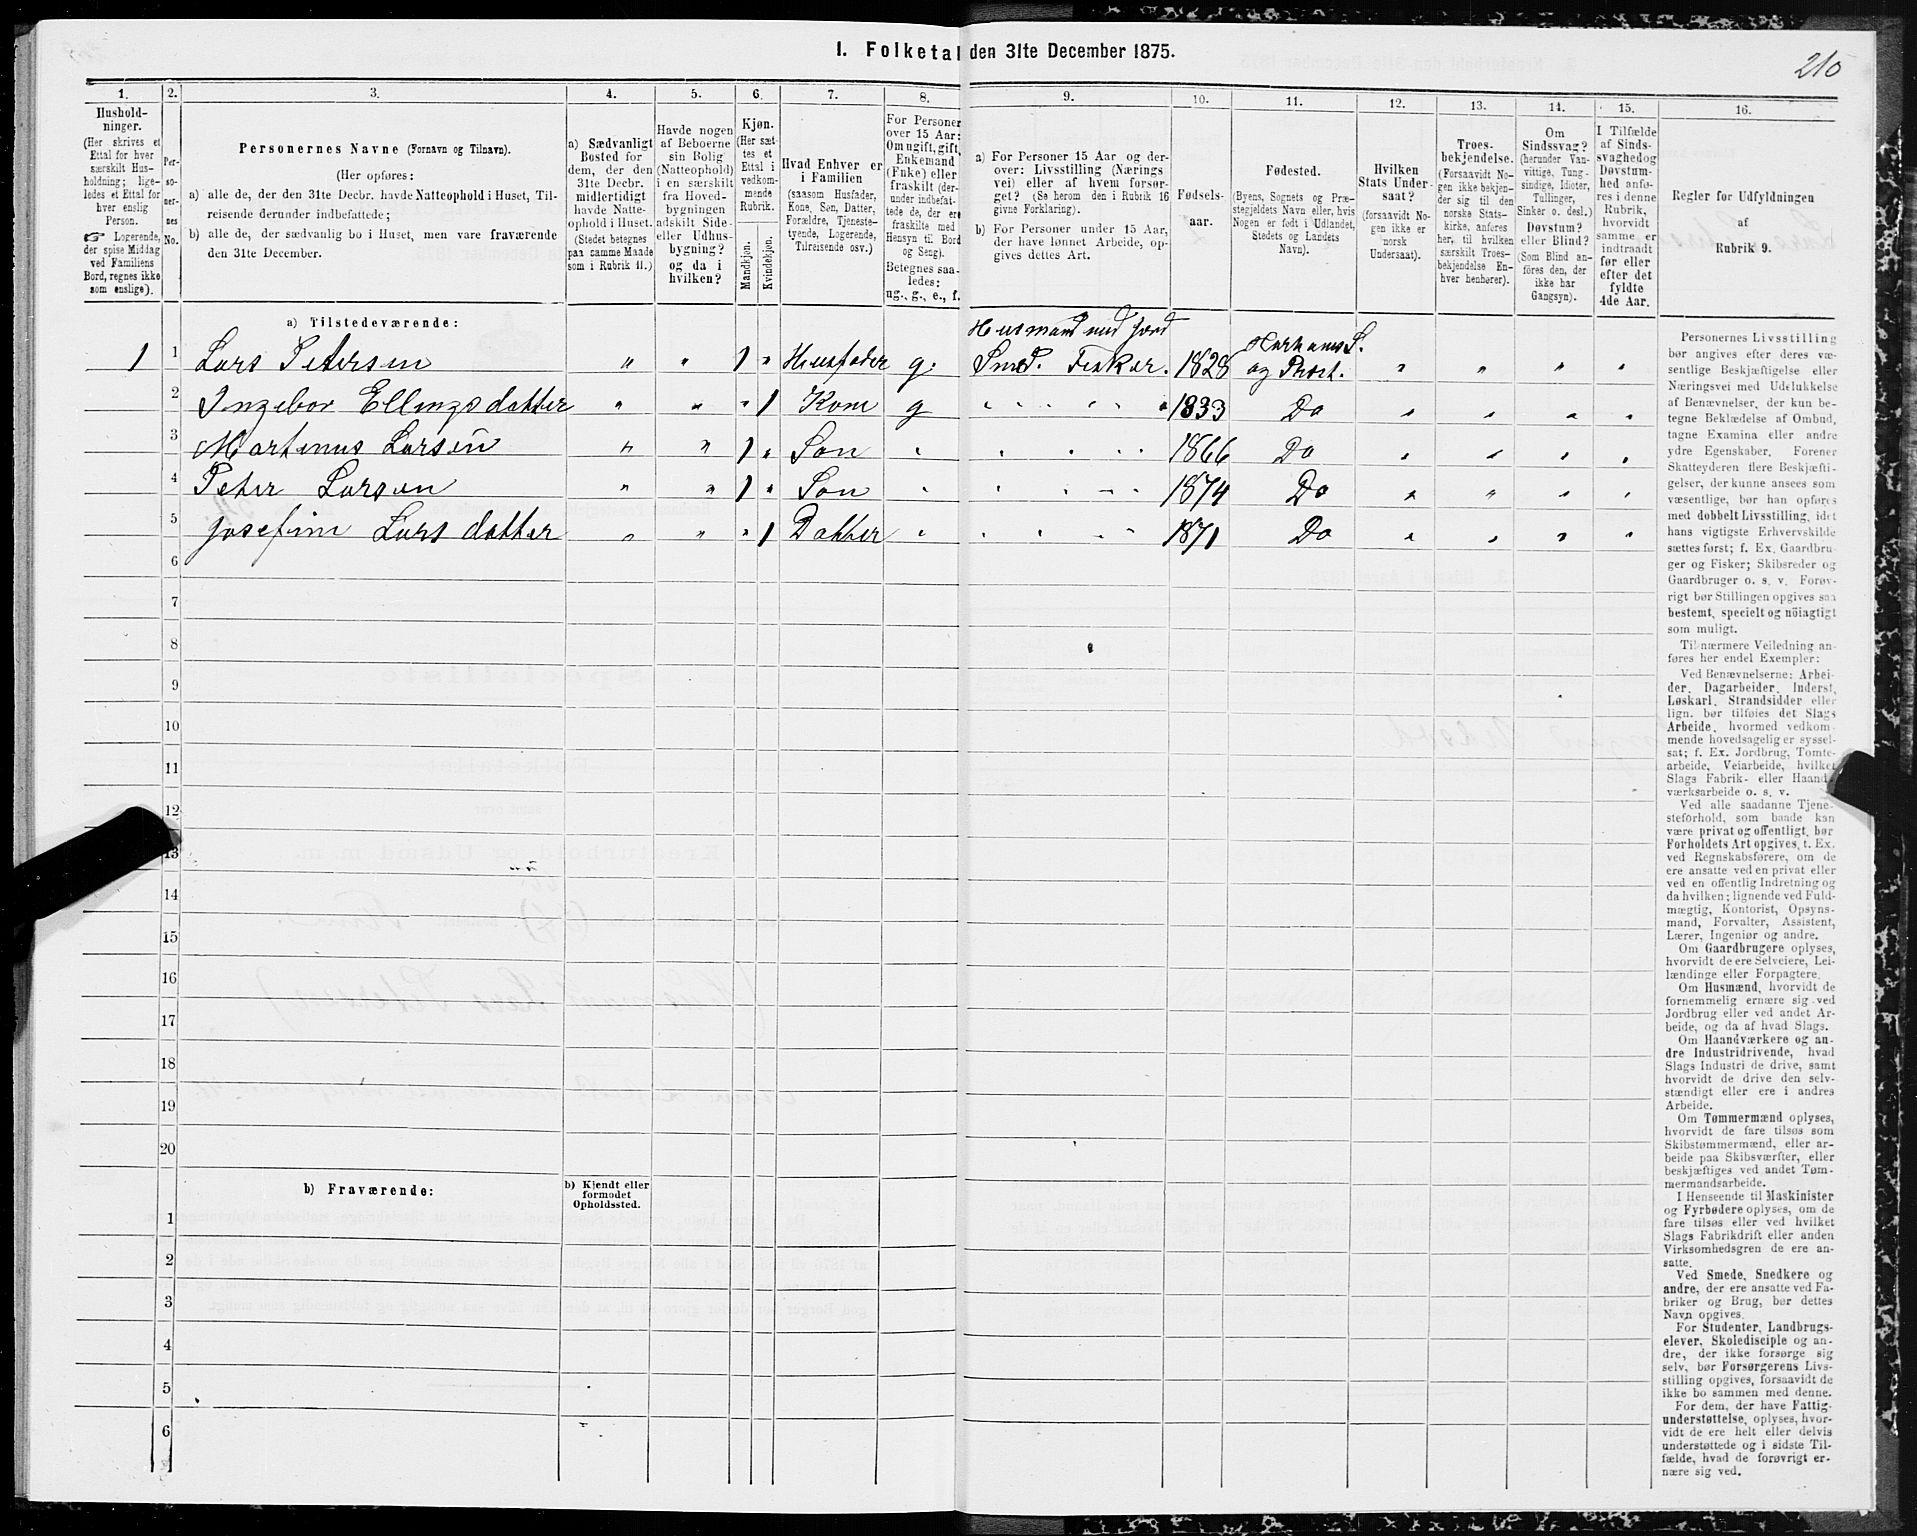 I. Folketal den 31te December 1875.
210
1. 2. 3. 4. 5. 6. 7. 8. 9. 10. 11. 12. 13. 14. 15. 16.
Hushold-
ninger.
(Her skrives et
Ettal for hver
særskilt Hus-
holdning; lige-
ledes et Ettal for
hver enslig
Person.
☞ Logerende,
der spise Middag
ved Familiens
Bord, regnes ikke
som enslige).
Per-
so-
ner-
nes
No.
Personernes Navne (Fornavn og Tilnavn).
(Her opføres:
a) alle de, der den 31te Decbr. havde Natteophold i Huset, Til-
reisende derunder indbefattede;
b) alle de, der sædvanlig bo i Huset, men vare fraværende
den 31te December.
a) Sædvanligt
Bosted for
dem, der den
31te Decbr.
midlertidigt
havde Natte-
ophold i Huset.
(Stedet betegnes
paa samme Maade
som i Rubrik 11.)
Havde nogen
af Beboerne
sin Bolig
(Natteophold)
i en særskilt
fra Hoved-
bygningen
adskilt Side-
eller Udhus-
bygning?
og da i
hvilken?
Kjøn.
(Her sæt-
tes et
Ettal i
vedkom-
mende
Rubrik.
Mandkjøn.
Kvindekjøn.
Hvad Enhver er
i Familien
(saasom Husfader,
Kone, Søn, Datter,
Forældre, Tjeneste-
tyende, Logerende,
Tilreisende osv.)
For Personer
over 15 Aar:
Om ugift, gift,
Enkemand
(Enke) eller
fraskilt (der-
under indbefat-
tede de, der ere
fraskilte med
Hensyn til Bord
og Seng).
Betegnes saa-
ledes:
ug., g., e., f.
a) For Personer 15 Aar og der-
over: Livsstilling (Nærings
vei) eller af hvem forsør-
get? (Se herom den i Rubrik 16
givne Forklaring).
b) For Personer under 15 Aar,
der have lønnet Arbeide, op-
gives dettes Art.
Fødsels-
aar.
Fødested.
(Byens, Sognets og Præ-
stegjeldets Navn eller, hvis
Nogen er født i Udlandet,
Stedets og Landets
Navn).
Hvilken
Stats Under-
saat?
(forsaavidt No-
gen ikke er
norsk
Undersaat).
Troes-
bekjendelse.
(Forsaavidt No-
gen ikke bekjen-
der sig til den
norske Stats-
kirke, anføres
her, til hvilken
særskilt Troes-
bekjendelse En-
hver henhører).
Om
Sindssvag?
(herunder Van-
vittige, Tung-
sindige, Idioter,
Tullinger,
Sinker o. desl.)
Døvstum?
eller Blind?
(Som Blind an-
føres den, der
ikke har
Gangsyn).
I Tilfælde
af Sinds-
svaghedog
Døvstum-
hed anfø-
res i denne
Rubrik,
hvorvidt
samme er
indtraadt
før eller
efter det
fyldte
4de Aar.
Regler for Udfyldningen
af
Rubrik 9.
a) Tilstedeværende:
1 1 Lars Petersen " " 1 " Husfader g. Husmand med Jord Smed. Fisker. 1828 Harhams S. og Præst. " " " "
2 Ingebor Ellingsdatter " " " 1 Kone g " 1833 Do " " " "
3 Martinus Larsen " " 1 " Søn " " 1866 Do " " " "
4 Peter Larsen " " 1 " Søn " " 1874 Do " " " "
5 Josefine Larsdatter " " " 1 Datter " " 1871 Do " " " "
6
7
8
9
10
11
12
13
14
15
16
17
18
19
20
b) Fraværende:
b) Kjendt eller
formodet
Opholdssted.
1
2
3
4
5
6
Personernes Livsstilling
bør angives efter deres væ-
sentlige Beskjæftigelse eller
Næringsvei med Udelukkelse
af Benævnelser, der kun be-
tegne Beklædelse af Ombud,
tagne Examina eller andre
ydre Egenskaber. Forener
Skatteyderen flere Beskjæfti-
gelser, der kunne ansees som
væsentlige, bør han opføres
med dobbelt Livsstilling, idet
hans vigtigste Erhvervskilde
sættes først; f. Ex. Gaardbru-
ger og Fisker; Skibsreder og
Gaardbruger o. s. v. Forøv-
rigt bør Stillingen opgives saa
bestemt, specielt og nöiagtigt
som muligt.
Til nærmere Veiledning an-
føres her endel Exempler:
Ved Benævnelserne: Arbei-
der, Dagarbeider, Inderst,
Løskarl, Strandsidder eller
lign. bør tilføies det Slags
Arbeide, hvormed vedkom-
mende hovedsagelig er syssel-
sat; f. Ex. Jordbrug, Tomte-
arbeide, Veiarbeide, hvilket
Slags Fabrik- eller Haand-
værksarbeide o. s. v.
Ved alle saadanne Tjene-
steforhold, som baade kan
være privat og offentligt, bør
Forholdets Art opgives, t. Ex.
ved Regnskabsførere, om de
ere ansatte ved en privat eller
ved en offentlig Indretning og
da hvilken; lignende ved Fuld-
mægtig, Kontorist, Opsyns-
mand, Forvalter, Assistent,
Lærer, Ingeniør og andre.
Om Gaardbrugere oplyses,
hvorvidt de ere Selveiere, Lei-
lændinge eller Forpagtere.
Om Husmænd, hvorvidt de
fornemmelig ernære sig ved
Jordbrug eller ved andet Ar-
beide, og da af hvad Slags.
Om Haandværkere og an-
dre Industridrivende, hvad
Slags Industri de drive, samt
hvorvidt de drive den selv-
stændigt eller ere i andres
Arbeide.
Om Tømmermænd oplyses,
hvorvidt de fare tilsøs som
Skibstømmermænd, eller ar-
beide paa Skibsværfter, eller
beskjæftiges ved andet Tøm-
mermandsarbeide.
I Henseende til Maskinister
og Fyrbødere oplyses, om de
fare tilsøs eller ved hvilket
Slags Fabrikdrift eller anden
Virksomhedsgren de ere an-
satte.
Ved Smede, Snedkere og
andre, der ere ansatte ved Fa-
briker og Brug, bør dettes
Navn opgives.
For Studenter, Landbrugs-
elever, Skoledisciple og an-
dre, der ikke forsørge sig
selv, bør Forsørgerens Livs-
stilling opgives, forsaavidt de
ikke bo sammen med denne.
For dem, der have Fattig-
understøttelse, oplyses, hvor-
vidt de ere helt eller delvis
understøttede og i sidste Til-
fælde, hvad de forøvrigt er-
nære sig ved.